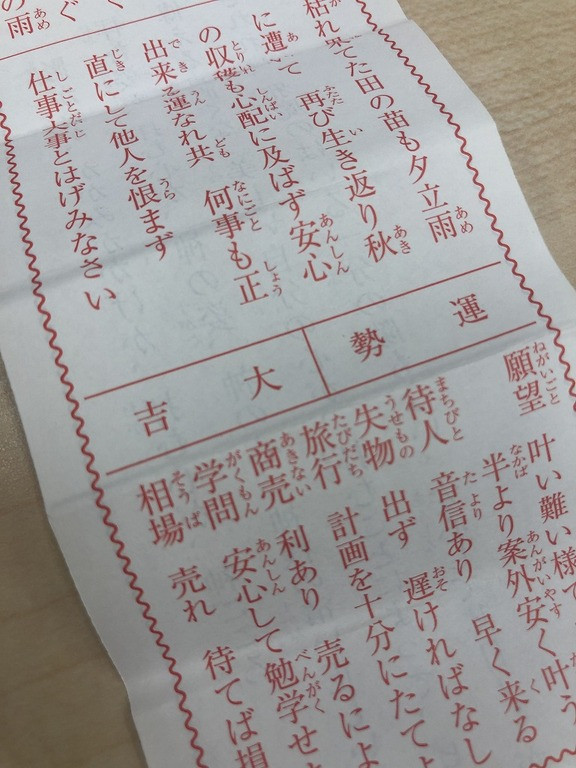 の雨
枯れ果てた田の苗も夕立雨
に遭って 再び生き返り秋
の収穫も心配に及ばず安心
出来る運なれ共 何事も正
直にして他人を恨まず
仕事大事とはげみなさい
運勢
大吉
願望 叶い難い様で
半より案外安く叶う
待人 音信あり 早く来る
失物 出ず 遅ければなし
旅行 計画を十分にたてよ
商売 利あり 売るによ
学問 安心して勉学せ
相場 売れ 待てば損